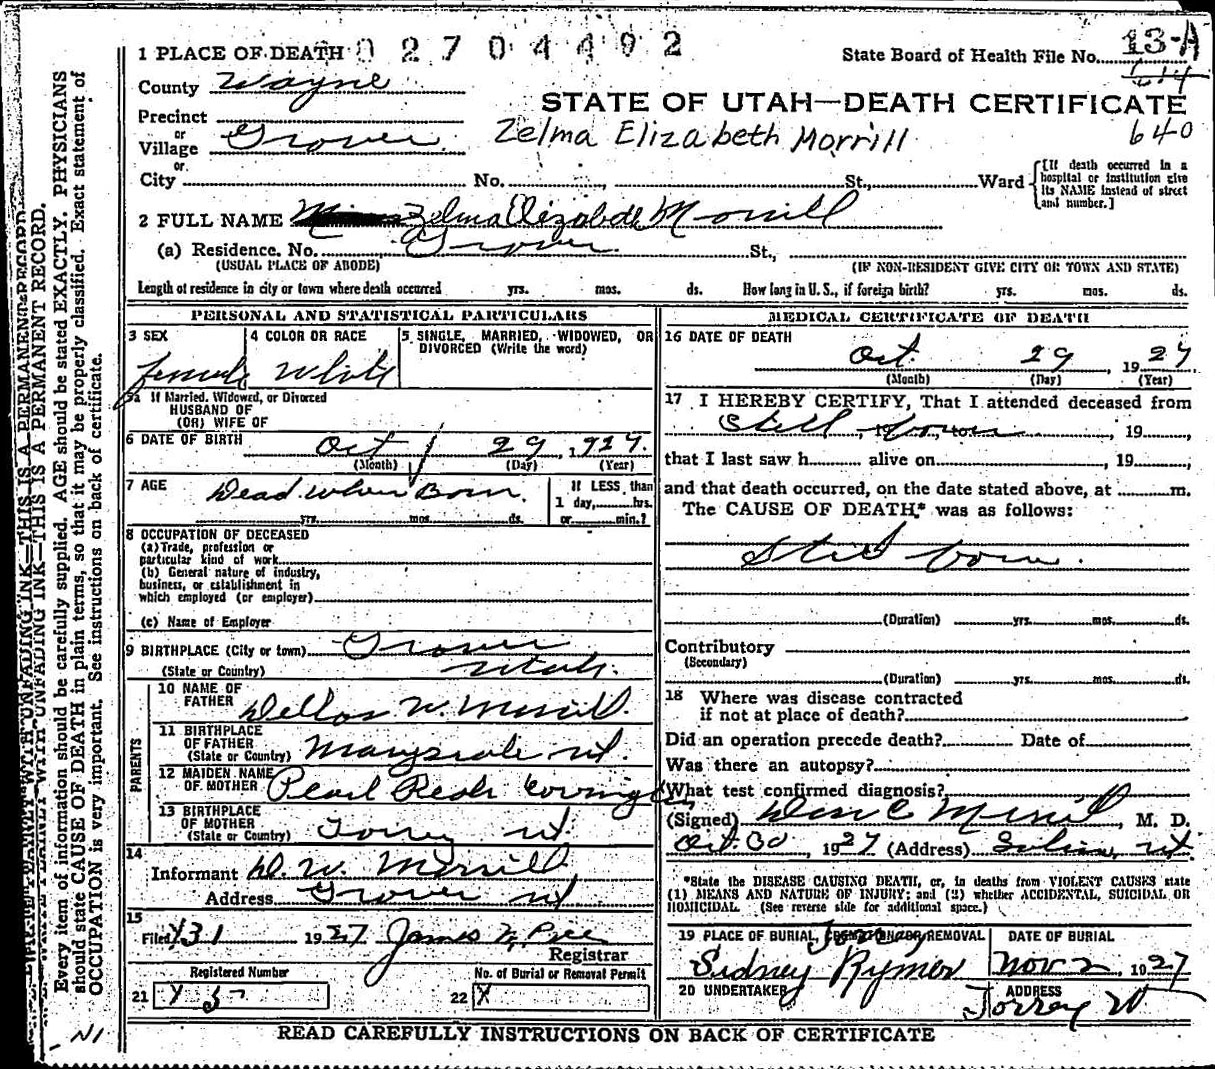 1 PLACE OF DEATH 02704492 State Board of Health File No. 13-A
614
County Wayne
STATE OF UTAH—DEATH CERTIFICATE
640
Precinct
or
Village Grover
Zelma Elizabeth Morrill
or
City No. , St., Ward
[If death occurred in a hospital or institution give its NAME instead of street and number.]
2 FULL NAME Zelma Elizabeth Morrill
(a) Residence. No. Grover St.,
(USUAL PLACE OF ABODE) (IF NON-RESIDENT GIVE CITY OR TOWN AND STATE)
Length of residence in city or town where death occurred yrs. mos. ds. How long in U. S., if foreign birth? yrs. mos. ds.
PERSONAL AND STATISTICAL PARTICULARS
3 SEX
female
4 COLOR OR RACE
White
5 SINGLE, MARRIED, WIDOWED, OR DIVORCED (Write the word)
5a If Married, Widowed, or Divorced
HUSBAND OF
(OR) WIFE OF
6 DATE OF BIRTH Oct 29, 1927.
(Month) (Day) (Year)
7 AGE Dead when Born.
yrs. mos. ds.
If LESS than
1 day, hrs.
or min.?
8 OCCUPATION OF DECEASED
(a) Trade, profession or
particular kind of work
(b) General nature of industry,
business, or establishment in
which employed (or employer)
(c) Name of Employer
9 BIRTHPLACE (City or town) Grover
(State or Country) Utah.
PARENTS
10 NAME OF FATHER Dellos W. Morrill.
11 BIRTHPLACE OF FATHER (State or Country) Marysvale ut.
12 MAIDEN NAME OF MOTHER Pearl Reah Covington
13 BIRTHPLACE OF MOTHER (State or Country) Torrey ut.
14
Informant D. W. Morrill
Address Grover ut
15
Filed 31 1927 James
Registrar
Registered Number No. of Burial or Removal Permit
21 22 X
MEDICAL CERTIFICATE OF DEATH
16 DATE OF DEATH
Oct. 29 1927
(Month) (Day) (Year)
17 I HEREBY CERTIFY, That I attended deceased from
Still born, 19 ,
that I last saw h alive on , 19 ,
and that death occurred, on the date stated above, at m.
The CAUSE OF DEATH* was as follows:
Still born.
(Duration) yrs. mos. ds.
Contributory
(Secondary)
(Duration) yrs. mos. ds.
18 Where was disease contracted
if not at place of death?
Did an operation precede death? Date of
Was there an autopsy?
What test confirmed diagnosis?
(Signed) Don C Merrill, M. D.
Oct. 30, 1927 (Address) Salina, ut.
*State the DISEASE CAUSING DEATH, or, in deaths from VIOLENT CAUSES state
(1) MEANS AND NATURE OF INJURY; and (2) whether ACCIDENTAL, SUICIDAL OR
HOMICIDAL. (See reverse side for additional space.)
19 PLACE OF BURIAL, CREMATION OR REMOVAL Torrey
DATE OF BURIAL
Nov 2, 1927
Sidney Rymer
20 UNDERTAKER
ADDRESS
Torrey Ut
READ CAREFULLY INSTRUCTIONS ON BACK OF CERTIFICATE
WRITE PLAINLY WITH UNFADING INK—THIS IS A PERMANENT RECORD.
Every item of information should be carefully supplied. AGE should be stated EXACTLY. PHYSICIANS
should state CAUSE OF DEATH in plain terms, so that it may be properly classified. Exact statement of
OCCUPATION is very important. See instructions on back of certificate.